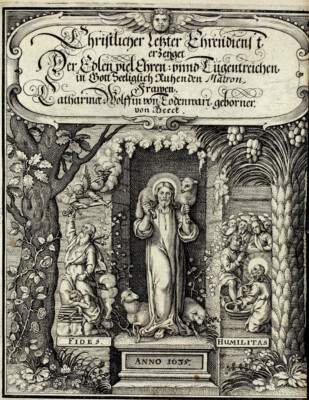 Christlicher Letzter Ehrendienst
erzeiget
Der Edlen, viel Ehren- vnnd Tugentreichen,
in Gott Seeliglich Ruhenden Matron,
Frawen,
Catharinæ Wolffin von Todenwart, geborner
von Beeck.
FIDES.
HUMILITAS
ANNO 1635.